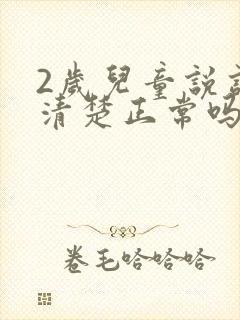 2歲兒童說
清楚正常吗
卷毛哈哈哈